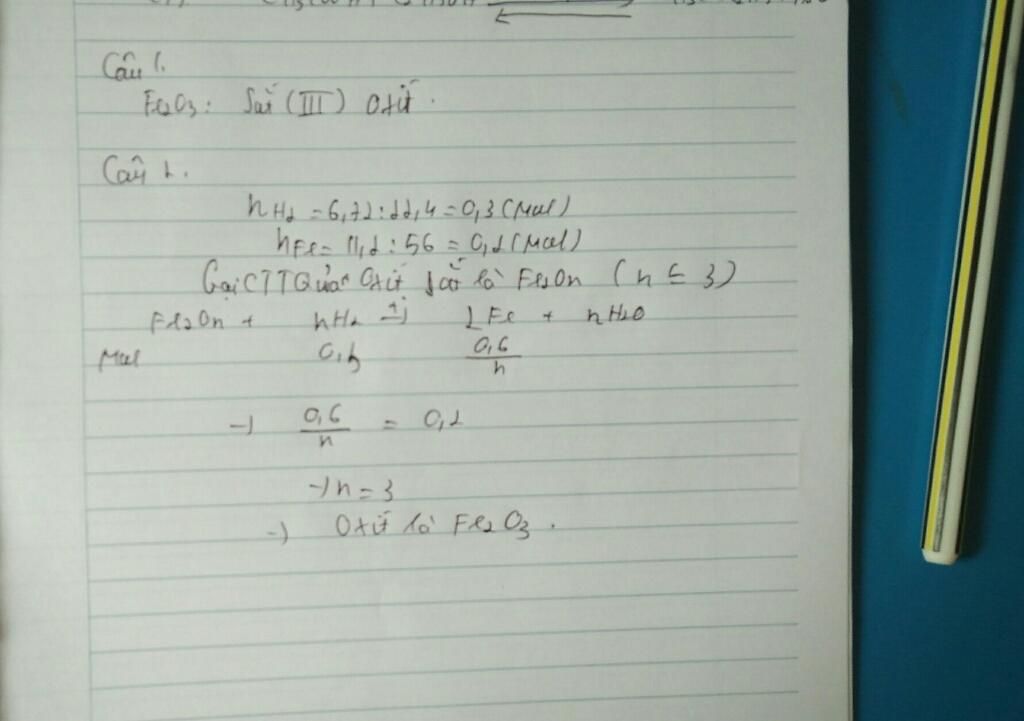 Câu 1.
Fe2O3: Sắt (III) Oxit.
Câu 2.
nH2 = 6,72:22,4 = 0,3 (Mol)
nFe = 11,2 : 56 = 0,2 (Mol)
Gọi CTTQuát Oxit sắt là Fe2On (n ≤ 3)
Fe2On + nH2 → 2Fe + nH2O
Mol 0,3 0,6/n
→ 0,6/n = 0,2
→ n = 3
→ Oxit là Fe2O3.